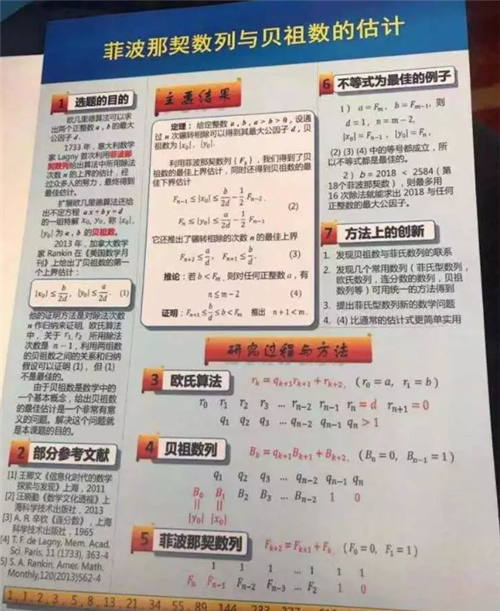 菲波那契数列与贝祖数的估计
1 选题的目的
欧几里德算法可以求
出两个正整数 a, b 的最大
公因子 d。
1733 年，意大利数学
家 Lagny 首次利用菲波那
契数列给出算法中所用除法
次数 n 的上界的估计，经
过众多人的努力，最终得到
最佳估计。
扩展欧几里德算法还给
出不定方程 ax + by = d
的一组特解 x₀, y₀，称 |x₀|,
|y₀| 为 a, b 的贝祖数。
2013 年，加拿大数学
家 Rankin 在《美国数学月
刊》上给出了贝祖数的第一
个上界估计：
|x₀| ≤ b/2d, |y₀| ≤ a/2d (1)
他的证明方法是对除法次数
n 作归纳来证明。欧氏算法
中，关于 r₁, r₂ 所用除法
次数是 n − 1，利用两组数
的贝祖数之间的关系和归纳
假设可以证明 (1)，但 (1)
不是最佳的。
由于贝祖数是数学中的
一个基本概念，给出贝祖数
的最佳估计是一个非常有意
义的问题。解决这个问题就
是本课题的目的。
2 部分参考文献
[1] 王鄂文《信息化时代的数学
探索与发现》上海，2011
[2] 汪晓勤《数学文化透视》上
海科学技术出版社，2013
[3] A. Я. 辛钦《连分数》，上海
科学技术出版社，1965
[4] T. F. de Lagny, Mem. Acad.
Sci. Paris, 11 (1733), 363-4
[5] S. A. Rankin, Amer. Math.
Monthly,120(2013)562-4
主要结果
定理：给定整数 a, b, a > b > 0，设通
过 n 次辗转相除可以得到其最大公因子 d，贝
祖数为 |x₀|, |y₀|。
利用菲波那契数列 {Fₖ}，我们得到了贝
祖数的最佳上界估计，同时还得到贝祖数的最
佳下界估计
Fₙ₋₁ ≤ |x₀| ≤ b/2d − 1/2 Fₙ₋₂,
(2)
Fₙ ≤ |y₀| ≤ a/2d − 1/2 Fₙ₋₁.
它还推出了辗转相除的次数 n 的最佳上界
Fₙ₊₂ ≤ a/d, Fₙ₊₁ ≤ b/d. (3)
推论：若 b < Fₘ，则对任何正整数 a，有
n ≤ m − 2 (4)
证明：Fₙ₊₁ ≤ b/d ≤ b < Fₘ 推出 n + 1 < m.
研究过程与方法
3 欧氏算法 rₖ = qₖ₊₁rₖ₊₁ + rₖ₊₂, (r₀ = a, r₁ = b)
r₀ r₁ r₂ r₃ ... rₙ₋₂ rₙ₋₁ rₙ = d rₙ₊₁ = 0
q₁ q₂ q₃ ... qₙ₋₂ qₙ₋₁ qₙ > 1
4 贝祖数列 Bₖ = qₖ₊₁Bₖ₊₁ + Bₖ₊₂, (Bₙ = 0, Bₙ₋₁ = 1)
q₁ q₂ q₃ ... qₙ₋₂ qₙ₋₁ qₙ
B₀ B₁ B₂ B₃ ... Bₙ₋₂ 1 0
|| ||
|y₀| |x₀|
5 菲波那契数列 Fₖ₊₂ = Fₖ₊₁ + Fₖ, (F₀ = 0, F₁ = 1)
1 1 1 ... 1 1 1
Fₙ Fₙ₋₁ Fₙ₋₂ Fₙ₋₃ ... F₂ 1 0
6 不等式为最佳的例子
1） a = Fₘ, b = Fₘ₋₁, 则
d = 1, n = m − 2,
|x₀| = Fₙ₋₁, |y₀| = Fₙ.
(2) (3) (4) 中的等号都成立，所
以不等式都是最佳的。
2）b = 2018 < 2584 ( 第
18个菲波那契数 )，则最多用
16 次除法就能求出 2018 与任何
正整数的最大公因子。
7 方法上的创新
1. 发现贝祖数与菲氏数列的联系
2. 发现几个常用数列（菲氏型数列，
欧氏数列，连分数的数列，贝祖
数列等）可用统一的方法得到
3. 提出菲氏型数列新的数学问题
4. (4) 比通常的估计式更简单实用
1, 1, 2, 3, 5, 8, 13, 21, 34, 55, 89, 144, 233, 377